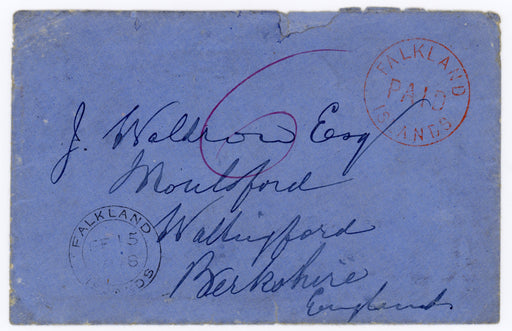 FALKLAND
PAID
ISLANDS
6
J. Waldron Esq
Moulsford
Wallingford
Berkshire
England
FALKLAND
FE 15